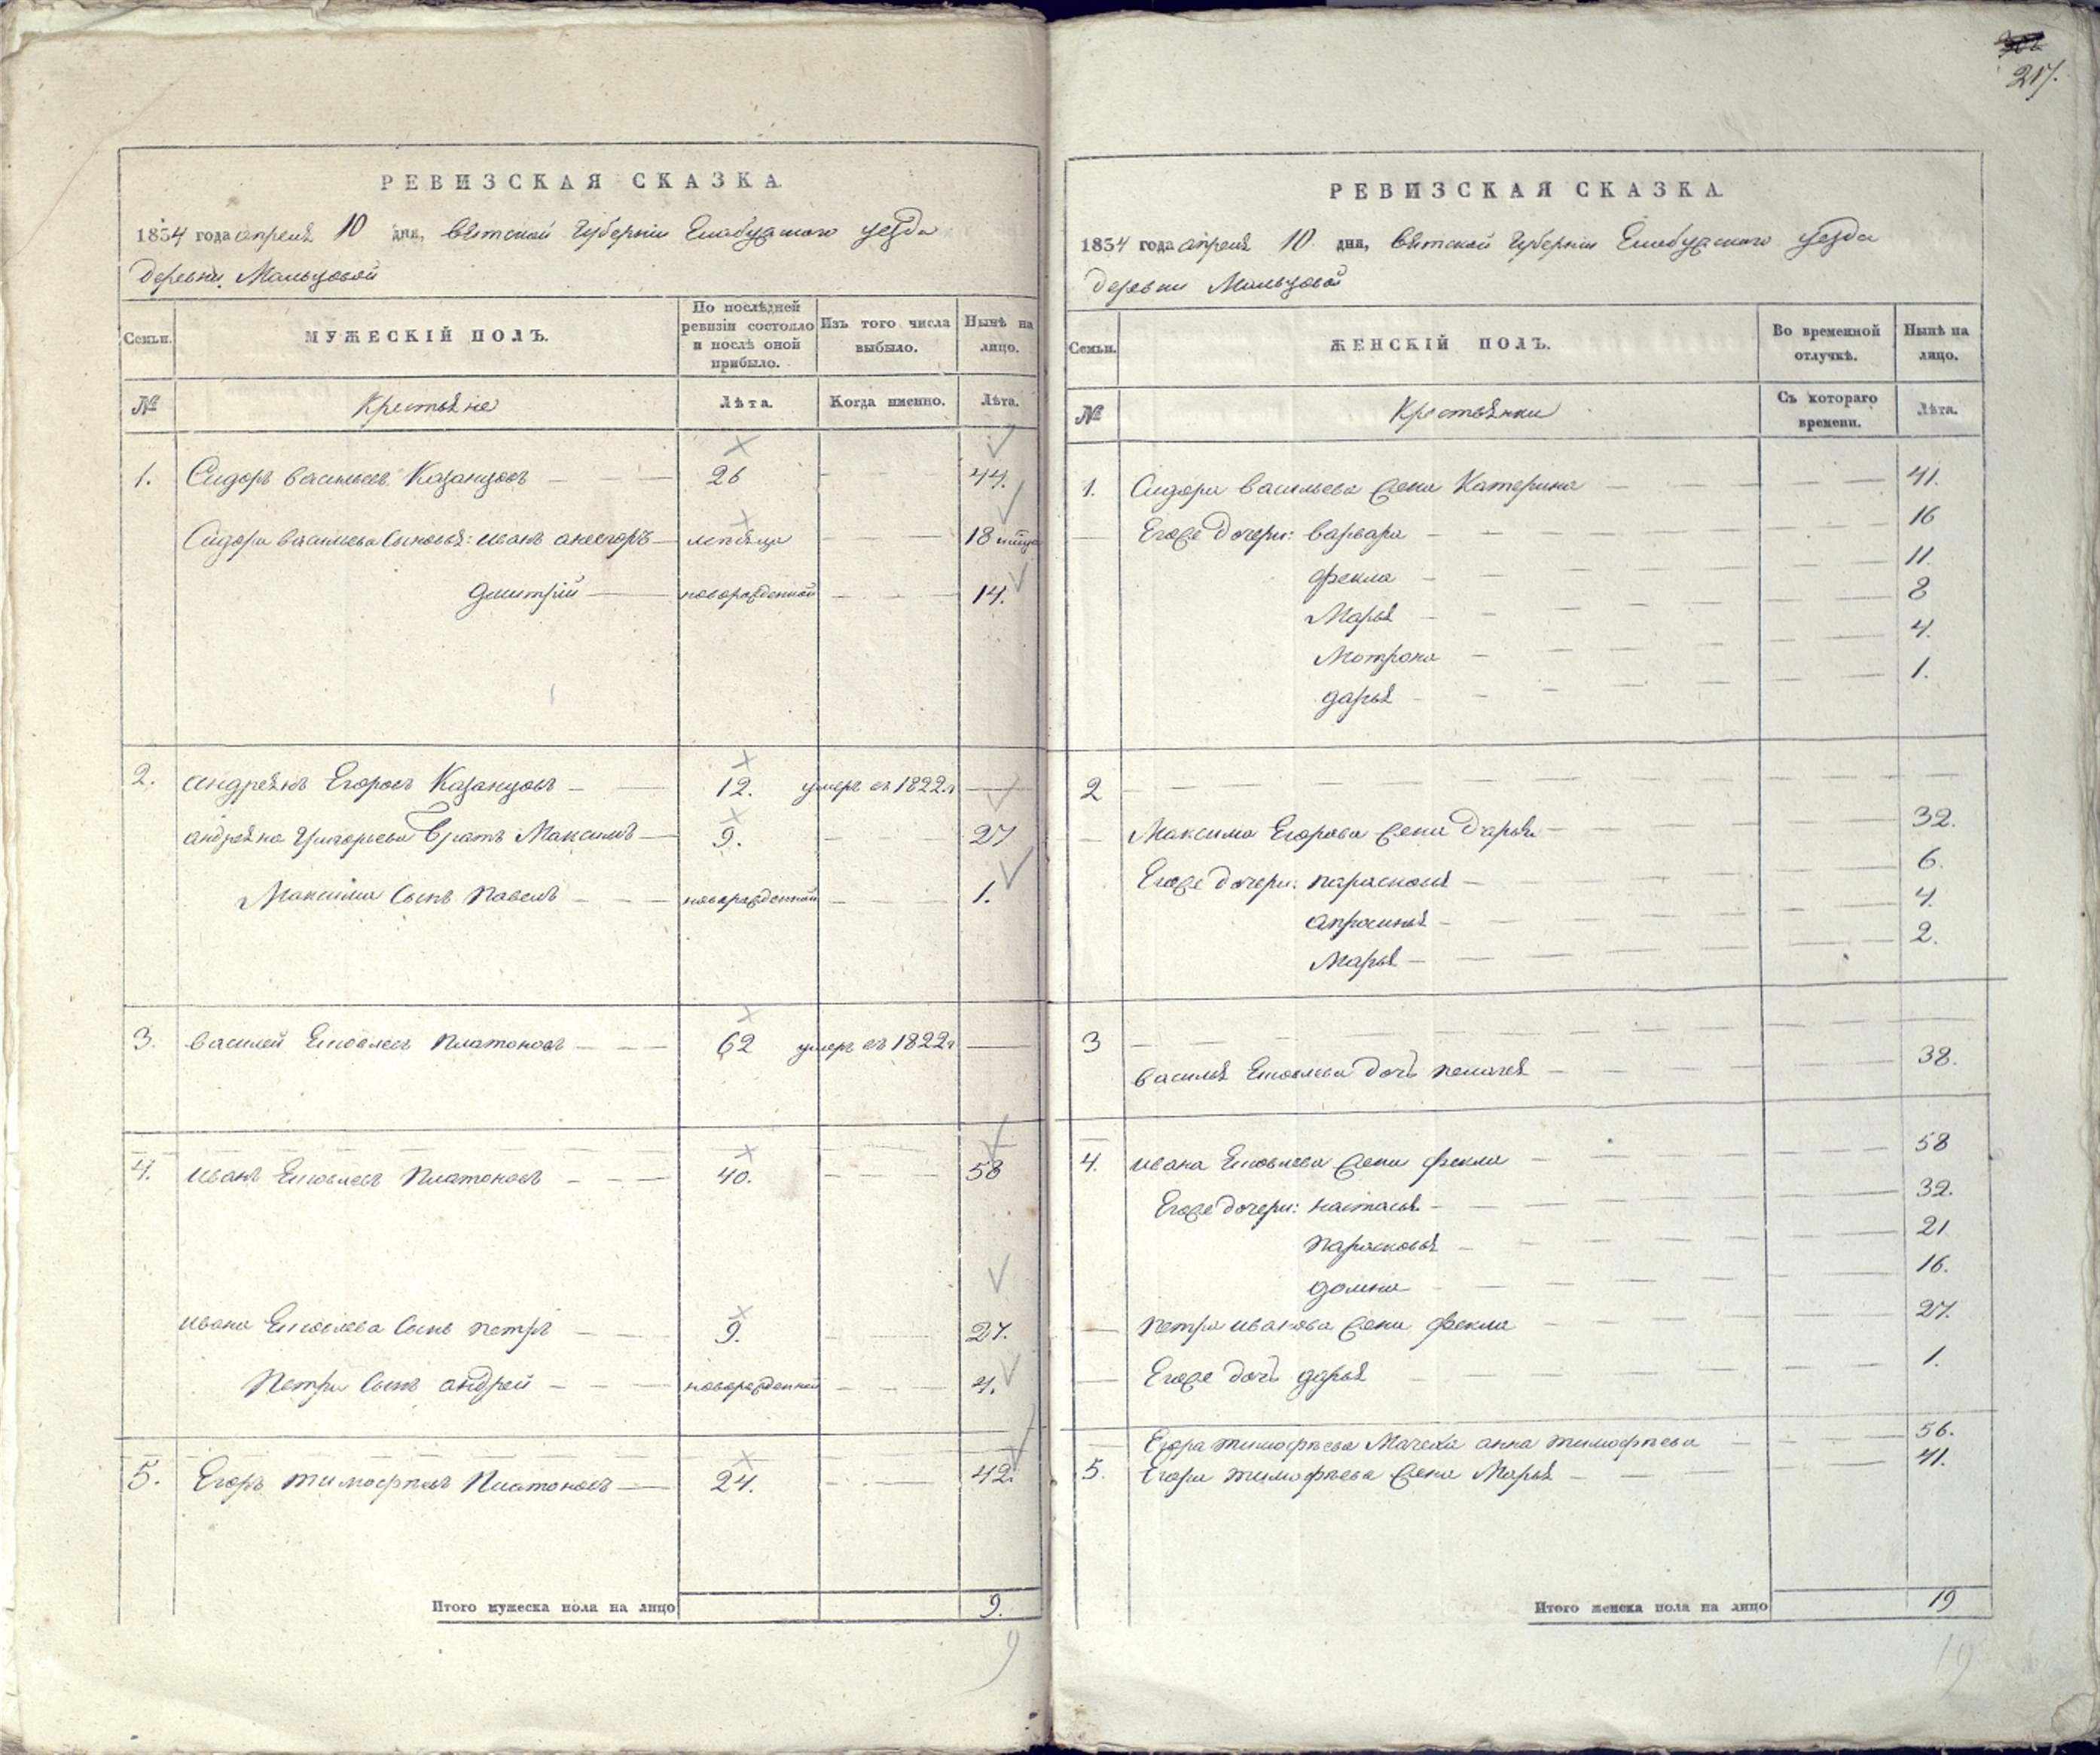 217.
РЕВИЗСКАЯ СКАЗКА
1834 года апреля 10 дня, Вятской Губернии Елабужского уезда
деревни Мальцовой
Семьи.
МУЖЕСКІЙ ПОЛЪ.
По послѣдней ревизіи состояло и послѣ оной прибыло.
Изъ того числа выбыло.
Нынѣ на лицо.
№ Крестьяне Лѣта. Когда именно. Лѣта.
1. Сидоръ Васильевъ Казанцовъ 26 44.
Сидора Васильева Сыновья: иванъ 18
дмитрій новорожденной 14.
2. андреянъ Егоровъ Казанцовъ 12. умеръ въ 1822
андреяна Григорьева Братъ Максимъ 9. 27
Максима Сынъ павелъ новорожденной 1.
3. василей Яковлевъ платоновъ 62 умеръ въ 1822
4. иванъ Яковлевъ Платоновъ 40. 58
ивана Яковлева Сынъ петръ 9. 27.
Петра Сынъ андрей новорожденной 4.
5. Егоръ тимофѣевъ Платоновъ 24. 42.
Итого мужеска пола на лицо 9.
9
РЕВИЗСКАЯ СКАЗКА
1834 года апреля 10 дня, Вятской Губернии Елабужского уезда
деревни Мальцовой
Семьи.
ЖЕНСКІЙ ПОЛЪ.
Во временной отлучкѣ.
Нынѣ на лицо.
№ Крестьянки Съ котораго времени. Лѣта.
1. Сидора васильева жена Катерина 41.
Егоже дочери: варвара 16
фекла 11.
Марья 8
Мотрона 4.
дарья 1.
2
Максима Егорова жена дарья 32.
Егоже дочери: парасковья 6.
апросинья 4.
Марья 2.
3
василья Яковлева дочь пелагея 38.
4. ивана Яковлева жена фекла 58
Егоже дочери: настасья 32.
парасковья 21
домна 16.
петра иванова жена фекла 27.
Егоже дочь дарья 1.
Егора тимофѣева Мачеха анна тимофѣева 56.
5. Егора тимофѣева жена Марья 41.
Итого женска пола на лицо 19
19